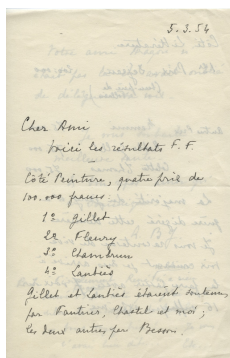 5.3.54
Cher Ami
Voici les résultats F.F.
Côté Peinture, quatre prix de
100.000 francs
1º Gillet
2º Fleury
3º Chambrun
4º Lantiès
Gillet et Lantiès étaient soutenus
par Fautrier, Chastel et moi ;
les deux autres par Besson.